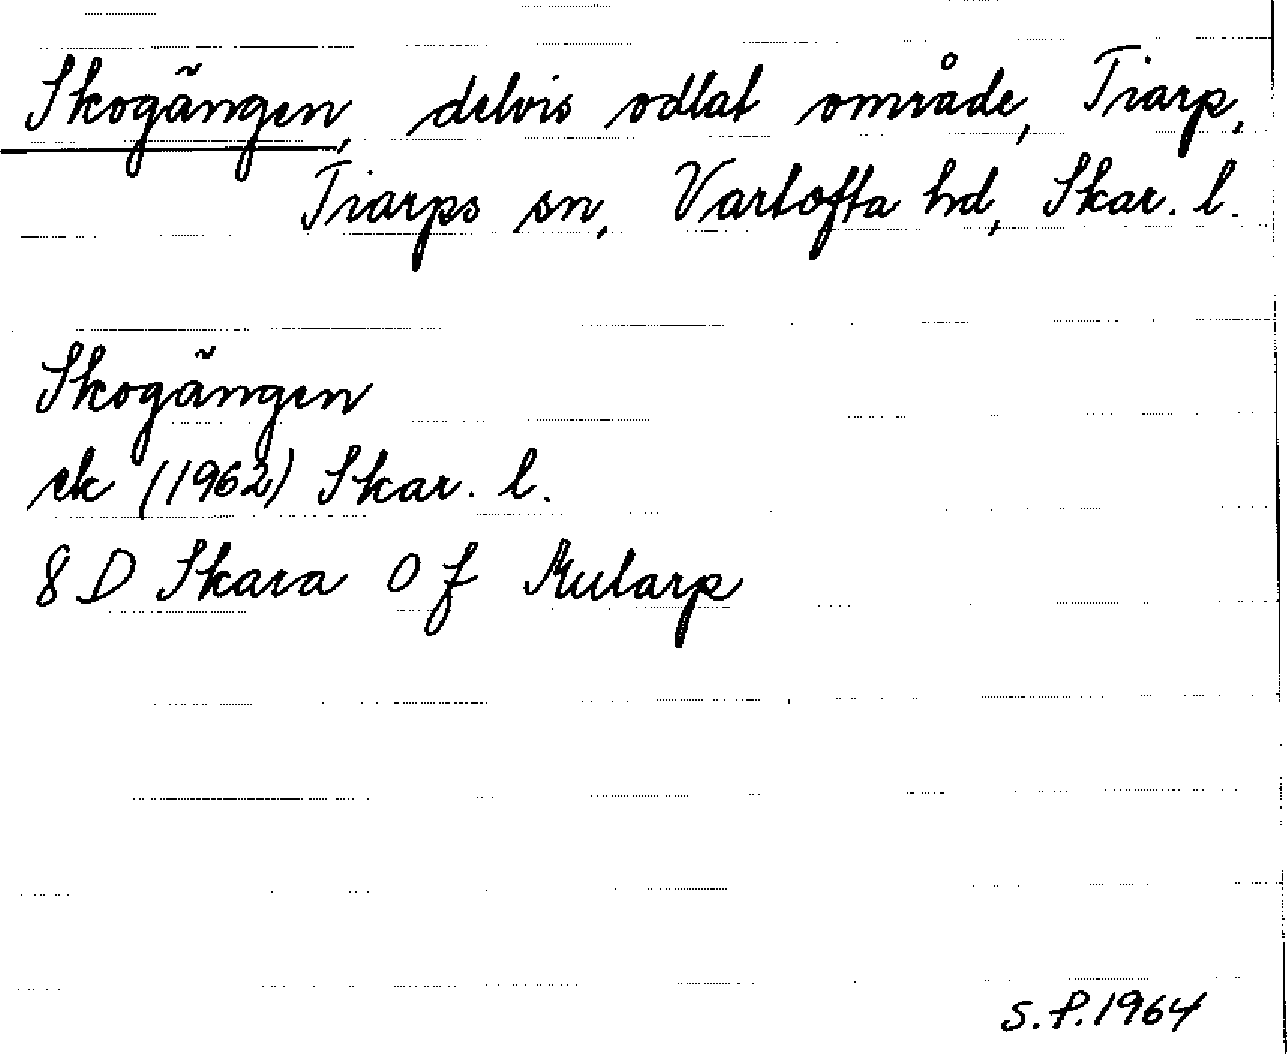 Skogängen, delvis odlat område, Tiarp,
Tiarps sn, Vartofta hd, Skar. l.
Skogängen
ek (1962) Skar. l.
8 D Skara 0 f Mularp
S.F.1964